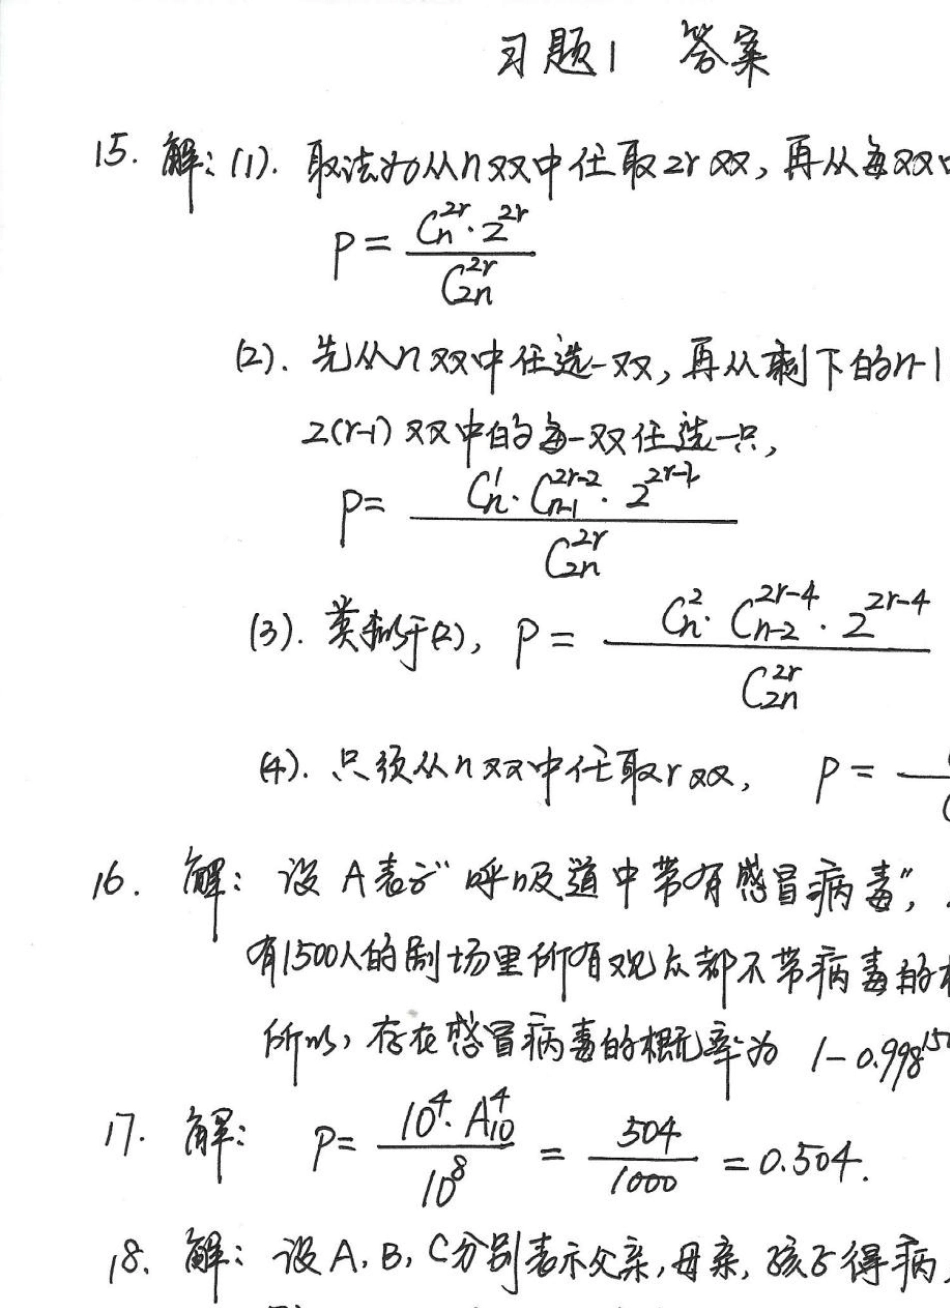 习题1 答案
15. 解：(1). 取法为从n双中任取2r双，再从每双
P = \frac{C_n^{2r} \cdot 2^{2r}}{C_{2n}^{2r}}
(2). 先从n双中任选一双，再从剩下的n-1
2(r-1)双中的每一双任选一只，
P = \frac{C_n^1 \cdot C_{n-1}^{2r-2} \cdot 2^{2r-2}}{C_{2n}^{2r}}
(3). 类似于(2)， P = \frac{C_n^2 \cdot C_{n-2}^{2r-4} \cdot 2^{2r-4}}{C_{2n}^{2r}}
(4). 只须从n双中任取r双， P =
16. 解：设A表示“呼吸道中带有感冒病毒”，
有1500人的剧场里所有观众都不带病毒的
所以，存在感冒病毒的概率为 1-0.998^{15
17. 解： P = \frac{10^4 \cdot A_{10}^4}{10^8} = \frac{504}{1000} = 0.504.
18. 解：设A，B，C分别表示父亲，母亲，孩子得病，